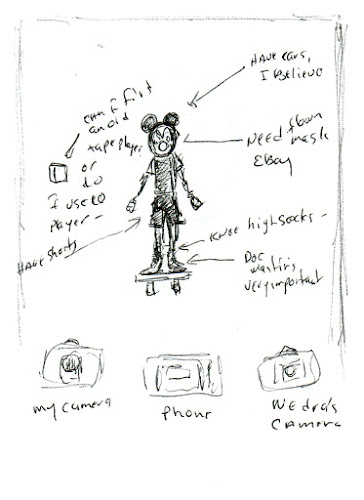 HAVE EARS,
I BELIEVE
CAN I FIND
AN OLD
TAPE PLAYER
OR
DO
I USE CD
PLAYER -
NEED CLOWN
MASK
EBAY
KNEE HIGH SOCKS -
HAVE Shorts
DOC
MARTINS
VERY IMPORTANT
MY CAMERA
Phone
CAMERA